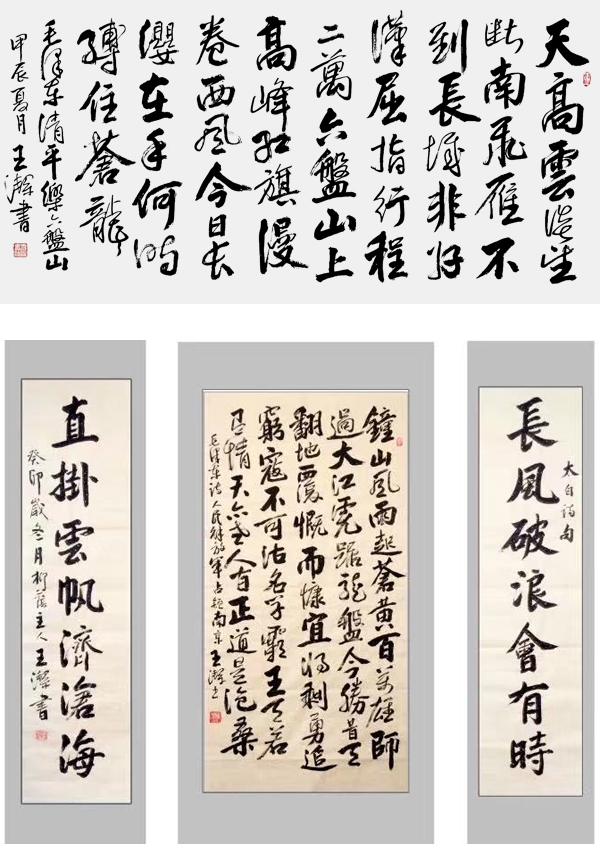 天高雲淡望
断南飛雁不
到長城非好
漢屈指行程
二萬六盤山上
高峰紅旗漫
卷西風今日長
纓在手何時
縛住蒼龍
毛澤東清平樂六盤山
甲辰夏月王書
長風破浪會有時
太白詩句
鐘山風雨起蒼黄百萬雄師
過大江虎踞龍盤今勝昔天
翻地覆慨而慷宜將剩勇追
窮寇不可沽名學霸王天若
有情天亦老人間正道是滄桑
毛澤東詩人民解放軍占領南京王
直掛雲帆濟滄海
癸卯歲冬月柳蔭主人王書